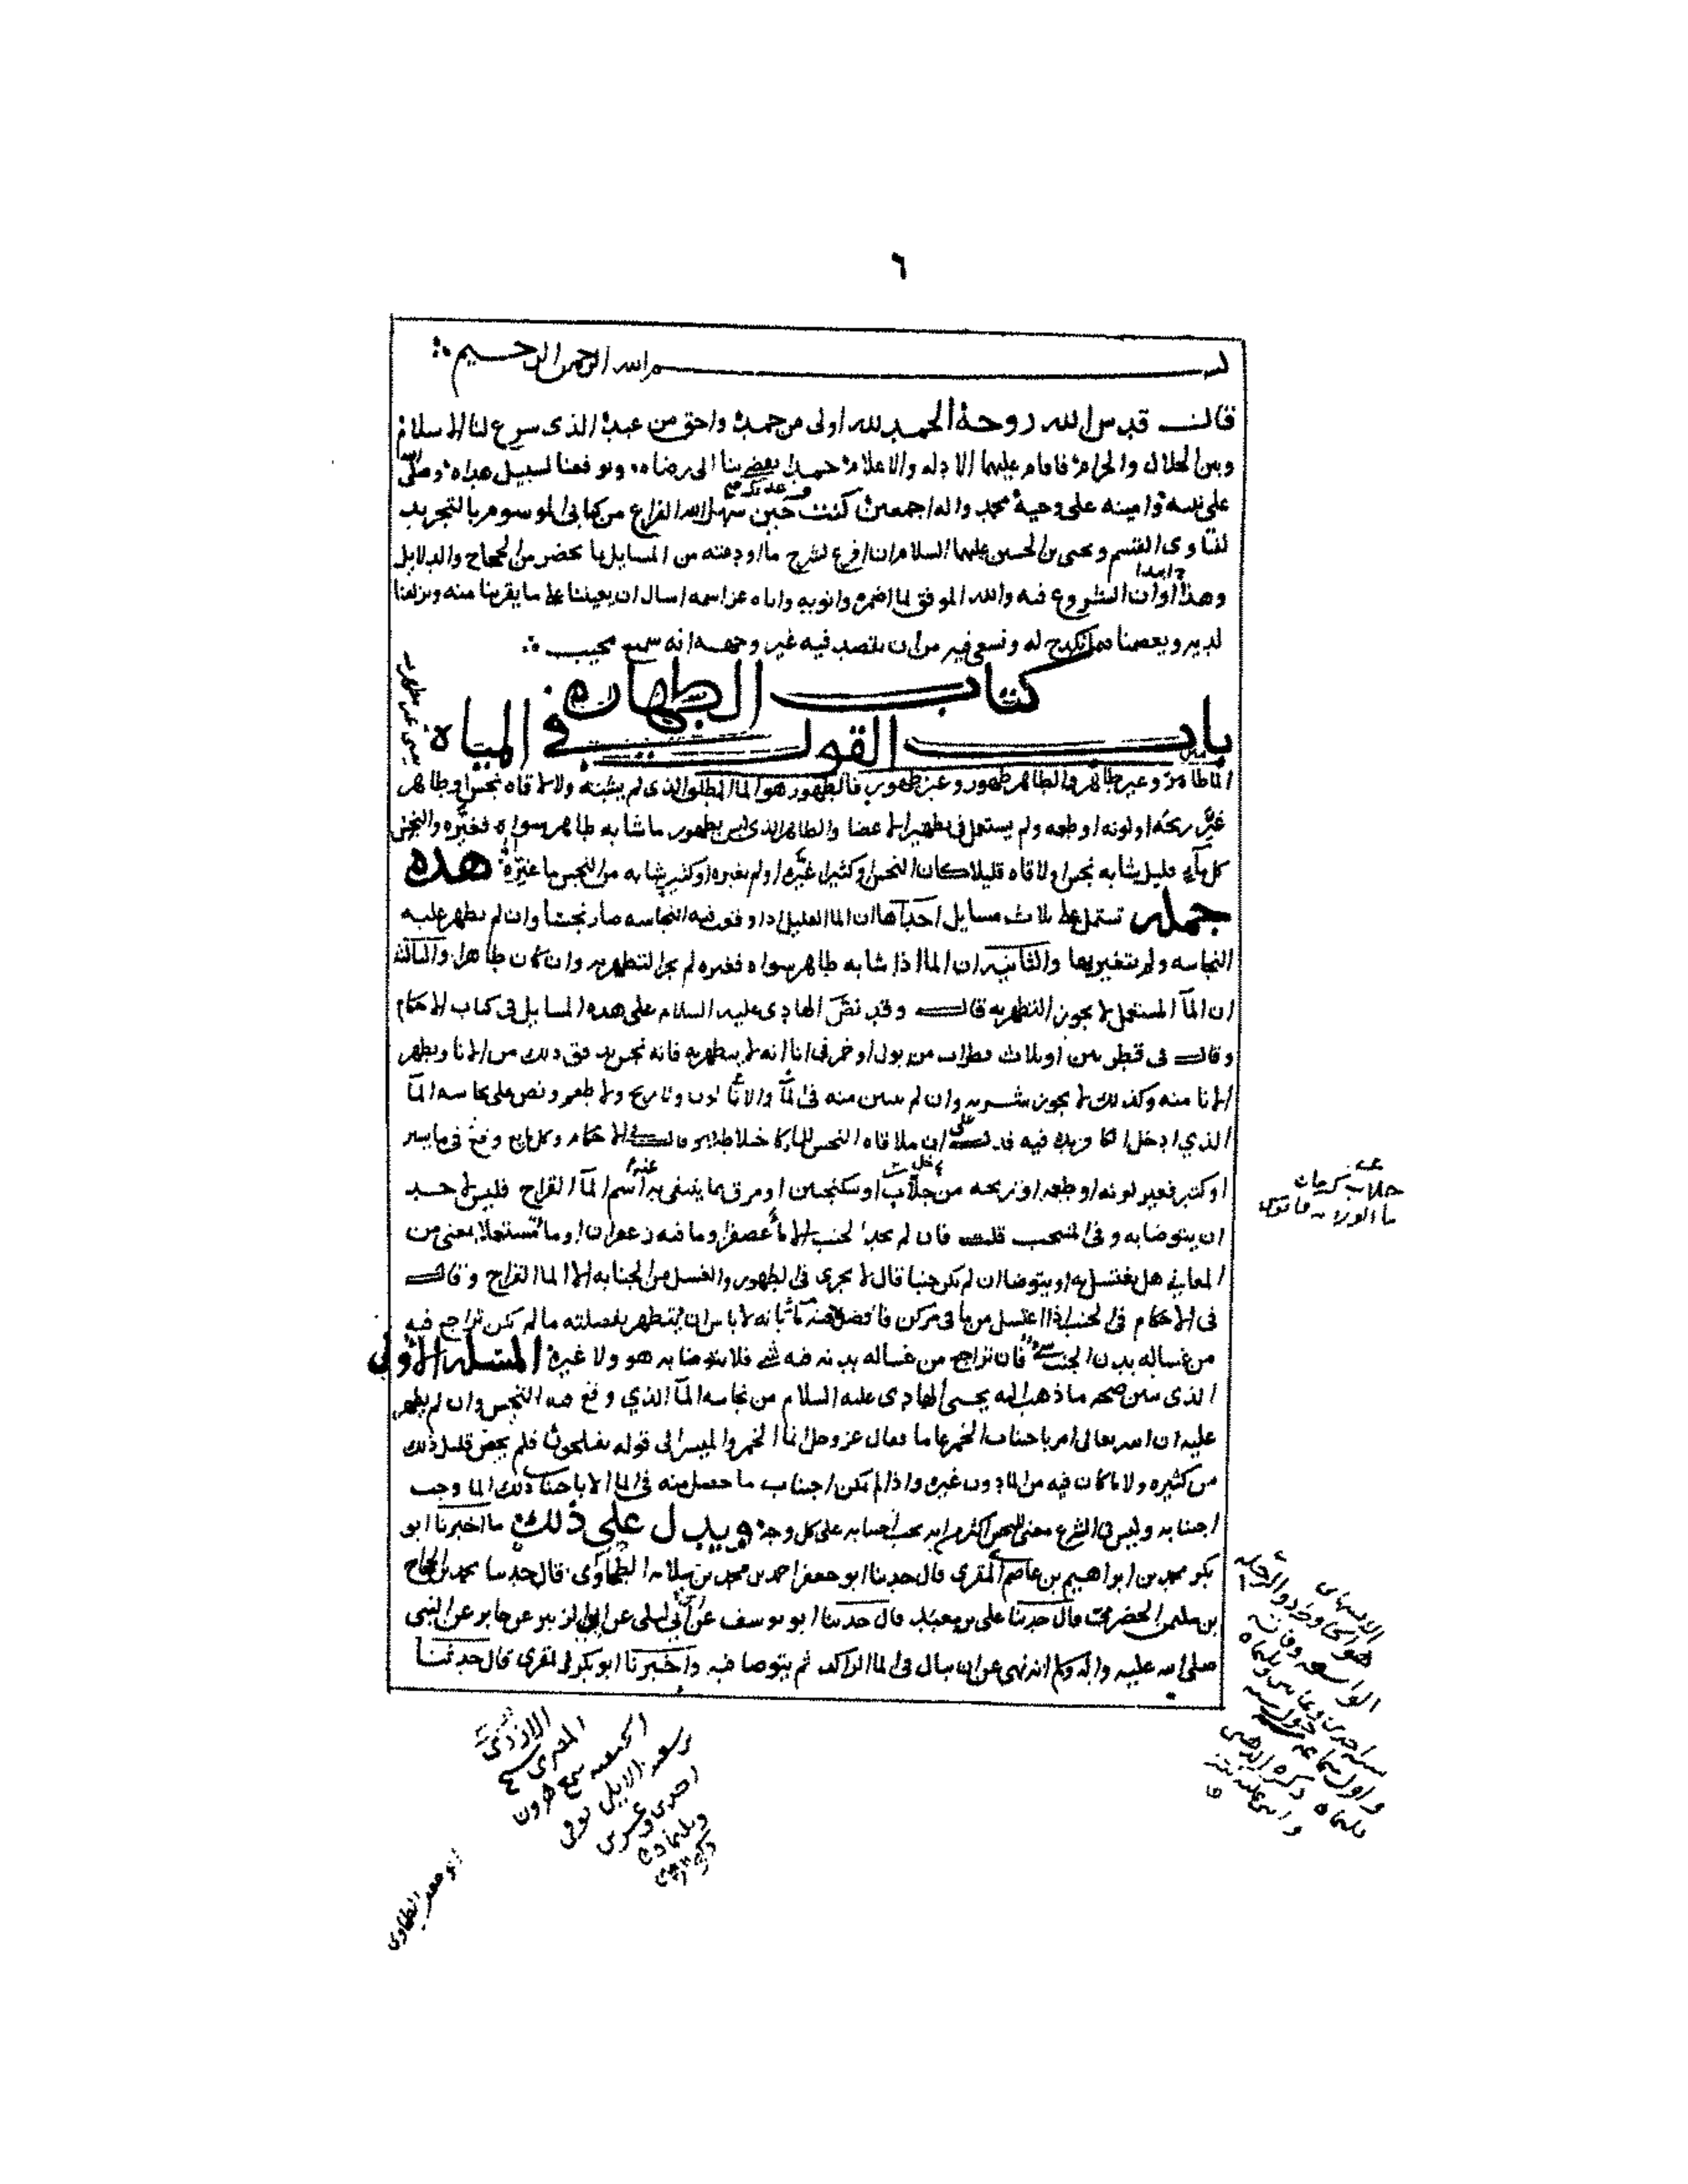 ٦
بسم الله الرحمن الرحيم
قال قدس الله روحه الحمد لله اولى من حمد واحق من عبد الذى شرع لنا الاسلام
وبين الحلال والحرام فاقام عليهما الادله والاعلام حمدا يفضى بنا الى رضاه ويوفقنا لسبيل هداه وصلى الله
على نبيه وامينه على وحيه محمد واله اجمعين كنت حين سهل الله الفراغ من كتابى الموسوم بالتجريد
لفتاوى القسم ويحيى بن الحسين عليهما السلام ان افرغ لشرح ما اودعته من المسايل بما يحضر من الحجاج والدلايل
وهذا اوان الشروع فيه والله الموفق لما اضمره وانويه واياه عز اسمه اسال ان يعيننا على ما يقربنا منه ويزلفنا
لديه ويعصمنا فيما نكدح له ونسعى فيه من ان نقصد فيه غير وجهه انه سميع مجيب
كتاب الطهاره
باب القول فى المياه
الما طاهر وغير طاهر والطاهر طهور وغير طهور فالطهور هو الما المطلق الذى لم يشبه ولا لاقاه نجس او طاهر
غير ريحه او لونه او طعمه ولم يستعمل فى تطهير الاعضا والطاهر الذى ليس بطهور ما شابه طاهر سواه فغيره والنجس
كل ماء قليل شابه نجس او لاقاه قليلا كان النجس او كثيرا غيره او لم يغيره او كثير شابه من النجس ما غيره هذه
جمله تشتمل على ثلاث مسايل احداها ان الما القليل اذا وقعت فيه النجاسه صار نجسا وان لم يظهر عليه
النجاسه ولم يتغير بها والثانيه ان الما اذا شابه طاهر سواه فغيره لم يجز التطهر به وان كان طاهرا والثالثه
ان الما المستعمل لا يجوز التطهر به قال وقد نص الهادى عليه السلام على هذه المسايل فى كتاب الاحكام
وقال فى قطرتين او ثلاث قطرات من بول او خمر فى انا انه لا يتطهر به فانه نجس يدفق ذلك من الانا ويطهر
الانا منه وكذلك لا يجوز شربه وان لم يتبين منه فى الما والانا لون ولا ريح ولا طعم ونص على نجاسه الما
الذي ادخل الكافر يده فيه
او كثير فغير لونه او طعمه او ريحه من جلاب او سكنجبين او مرق بما ينتفى به اسم الما القراح فليس لاحد
ان يتوضا به وفى المنتخب قلت فان لم يجد الجنب الا ما عصفر او ما فيه زعفران او ما مستعملا بمعنى من
المعاني هل يغتسل به او يتوضا ان لم يكن جنبا قال لا يجزى فى الطهور والغسل من الجنابه الا الما القراح وقال
فى الاحكام فى الجنب اذا اغتسل من ما فى مركن فافضل منه ما انه لا باس ان يتطهر بفضلته ما لم يكن تراجع فيه
من غساله بدن الجنب شيء فان تراجع من غساله بدنه فيه شى فلا يتوضا به هو ولا غيره المسئله الاولى
الذى يبين صحه ما ذهب اليه يحيى الهادى عليه السلام من نجاسه الما الذي وقع فيه النجس وان لم يظهر
عليه ان الله تعالى امر باجتناب الخمر عاما فقال عز وجل انما الخمر والميسر الى قوله تفلحون فلم يخص قليل ذلك
من كثيره ولا ما كان فيه من الما دون غيره واذا لم يكن اجتناب ما حصل منه فى الما الا باجتناب ذلك الما وجب
اجتنابه وليس فى الشرع معنى للنجس اكثر من انه يجب اجتنابه على كل وجه ويدل على ذلك ما اخبرنا ابو
بكر محمد بن ابراهيم بن عاصم المقرى قال حدثنا ابو جعفر احمد بن محمد بن سلامه الطحاوى قال حدثنا محمد بن الحجاج
بن سليمن الحضرمى قال حدثنا على بن معبد قال حدثنا ابو يوسف عن ابن ابى ليلى عن ابى الزبير عن جابر عن النبى
صلى الله عليه واله وسلم انه نهى عن ان يبال فى الما الراكد ثم يتوضا فيه واخبرنا ابو بكر المقرى قال حدثنا